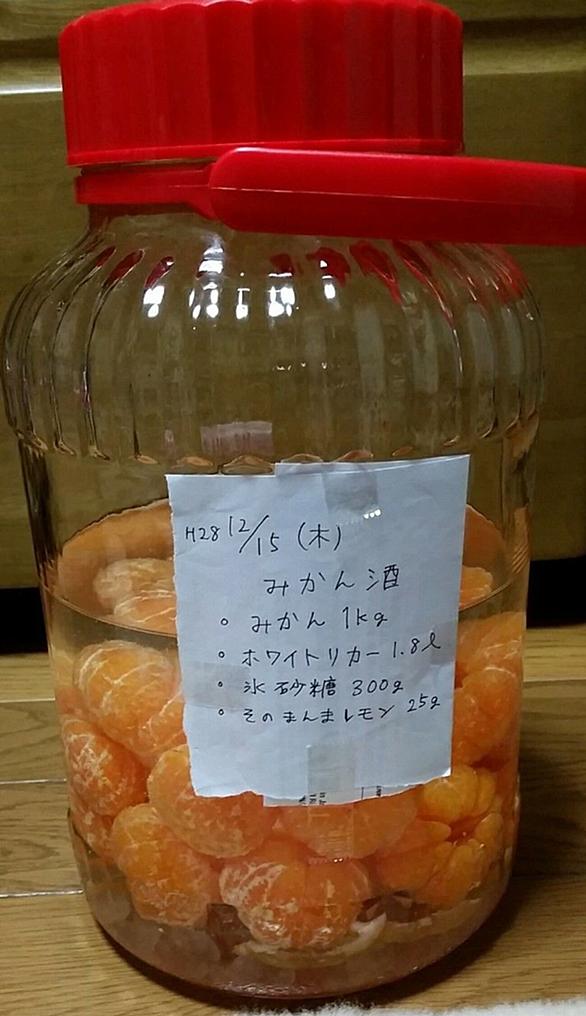 H28 12/15 (木)
みかん酒
◦ みかん 1kg
◦ ホワイトリカー 1.8ℓ
◦ 氷砂糖 300g
◦ そのまんまレモン 25g